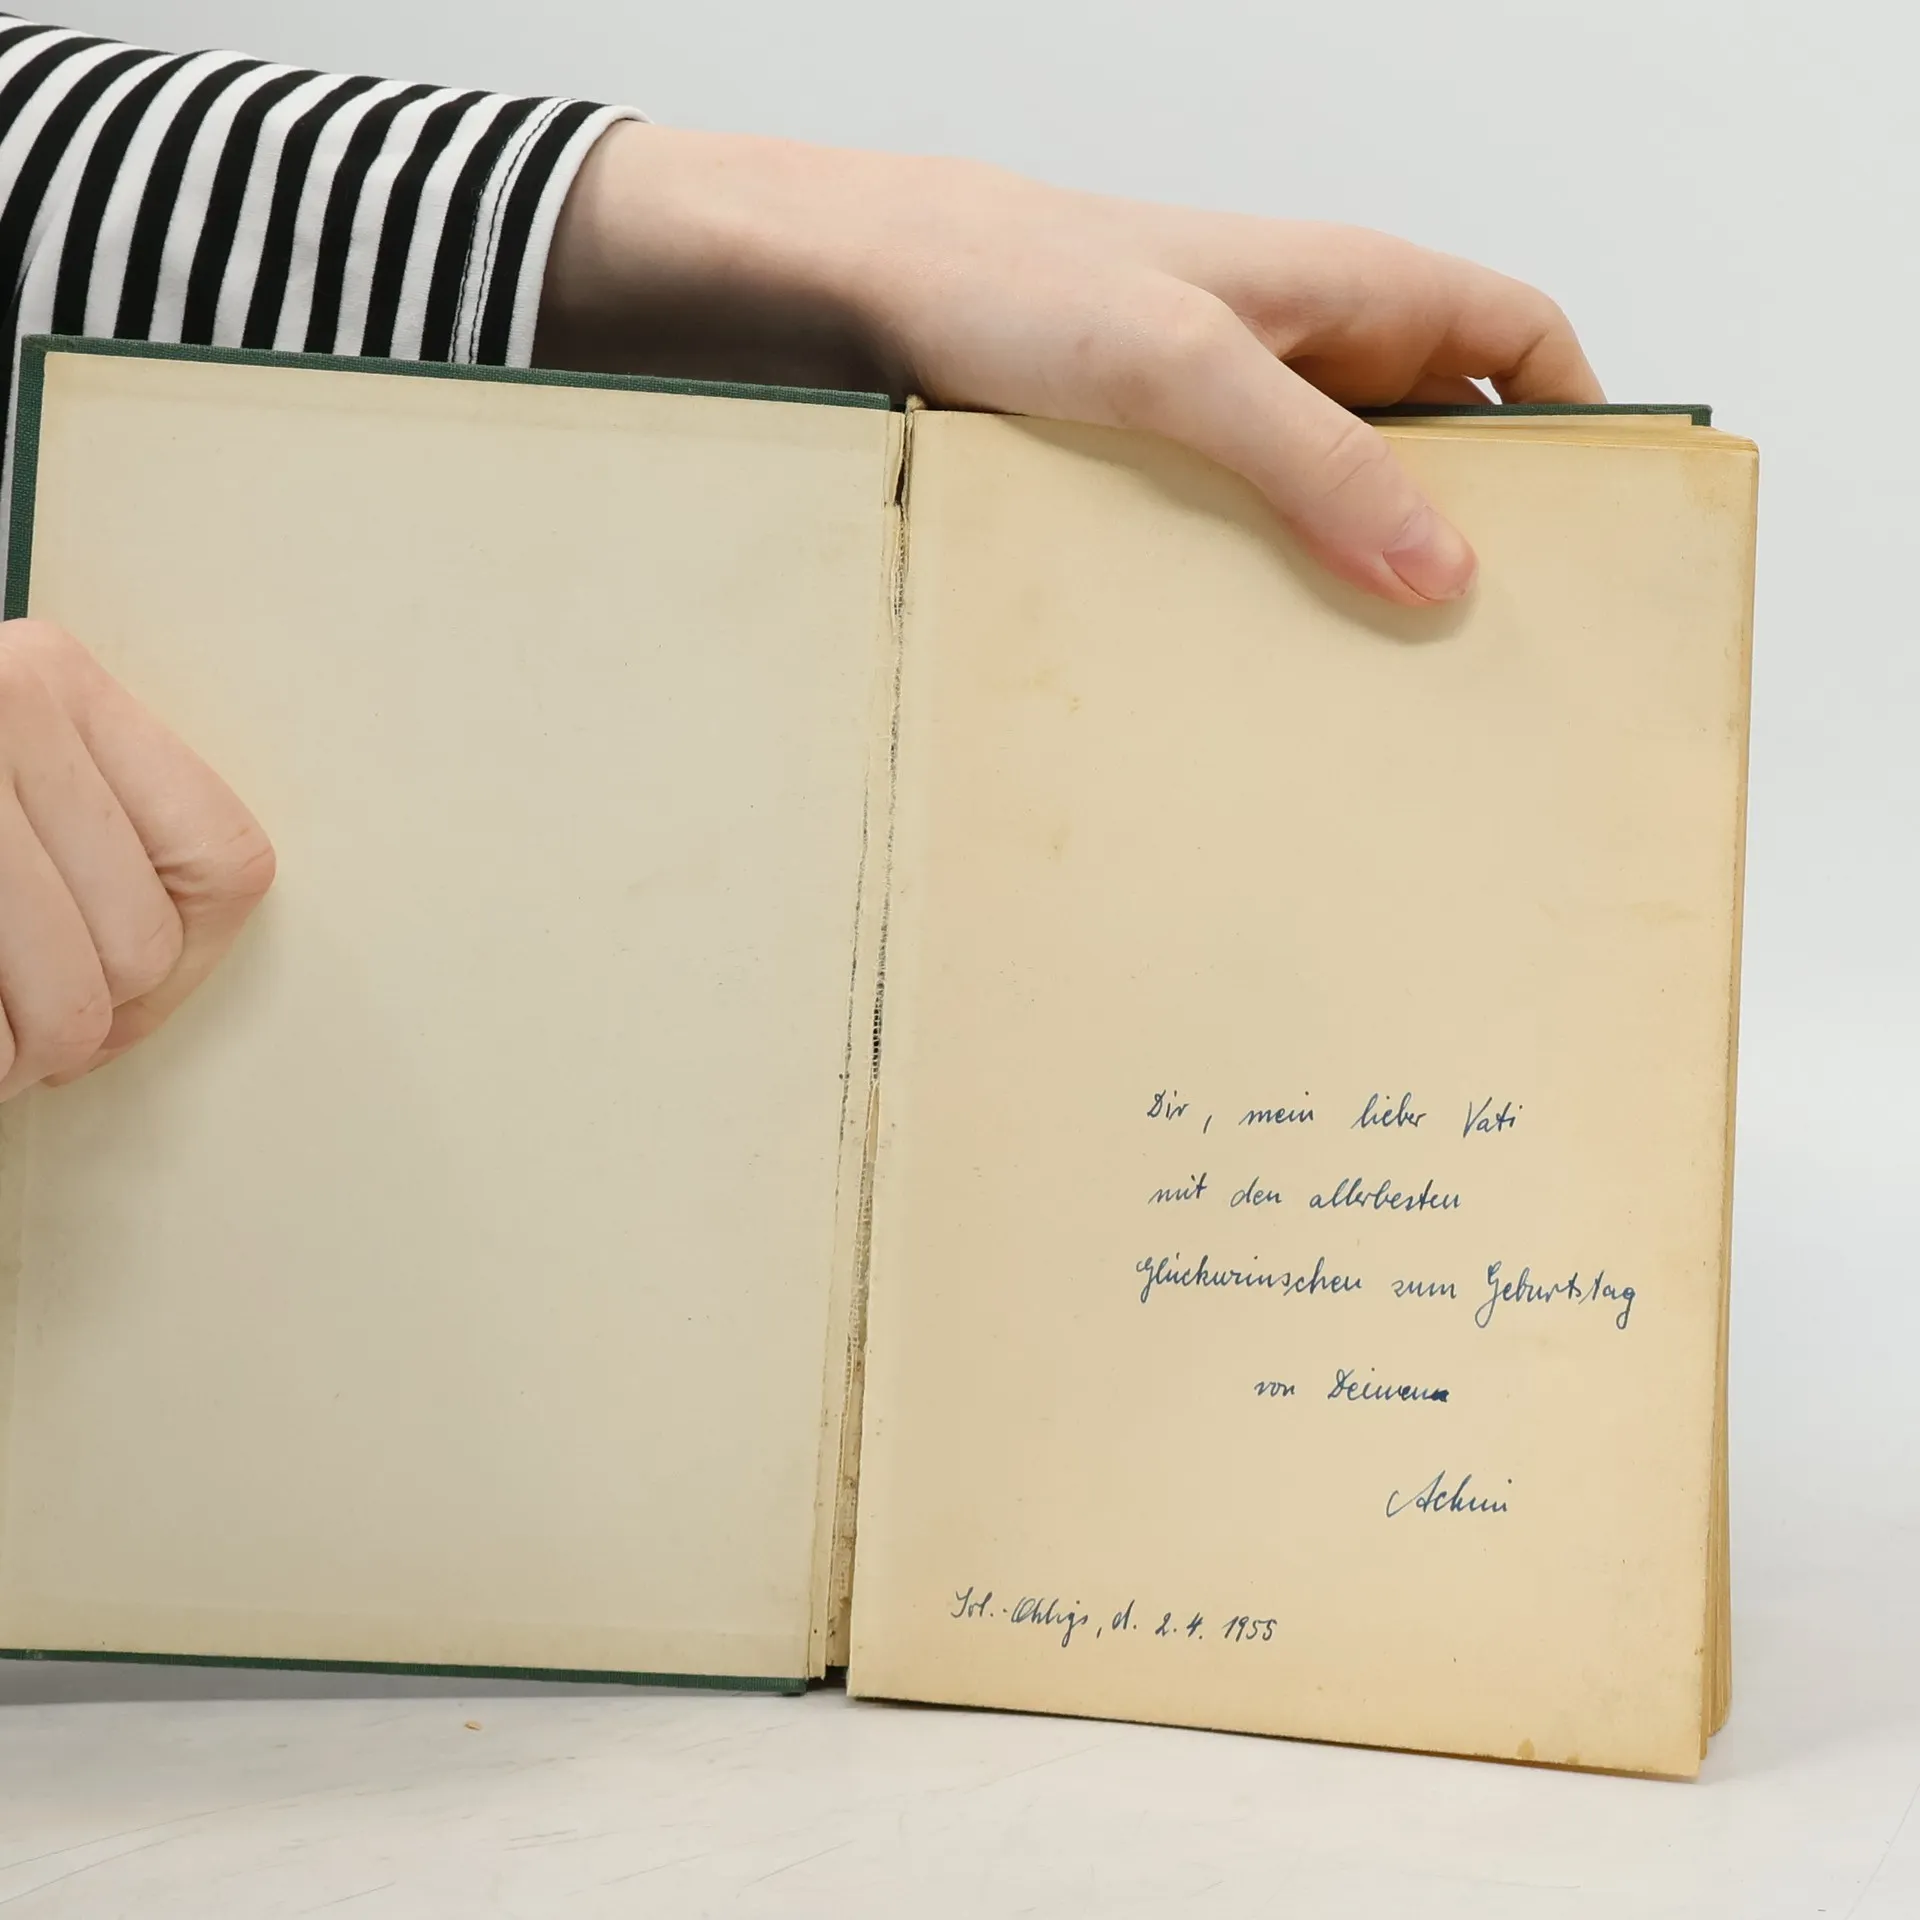 Dir, mein lieber Vati
mit den allerbesten
Glückwünschen zum Geburtstag
von Deinem
Achim
Sol.-Ohligs, d. 2.4. 1955